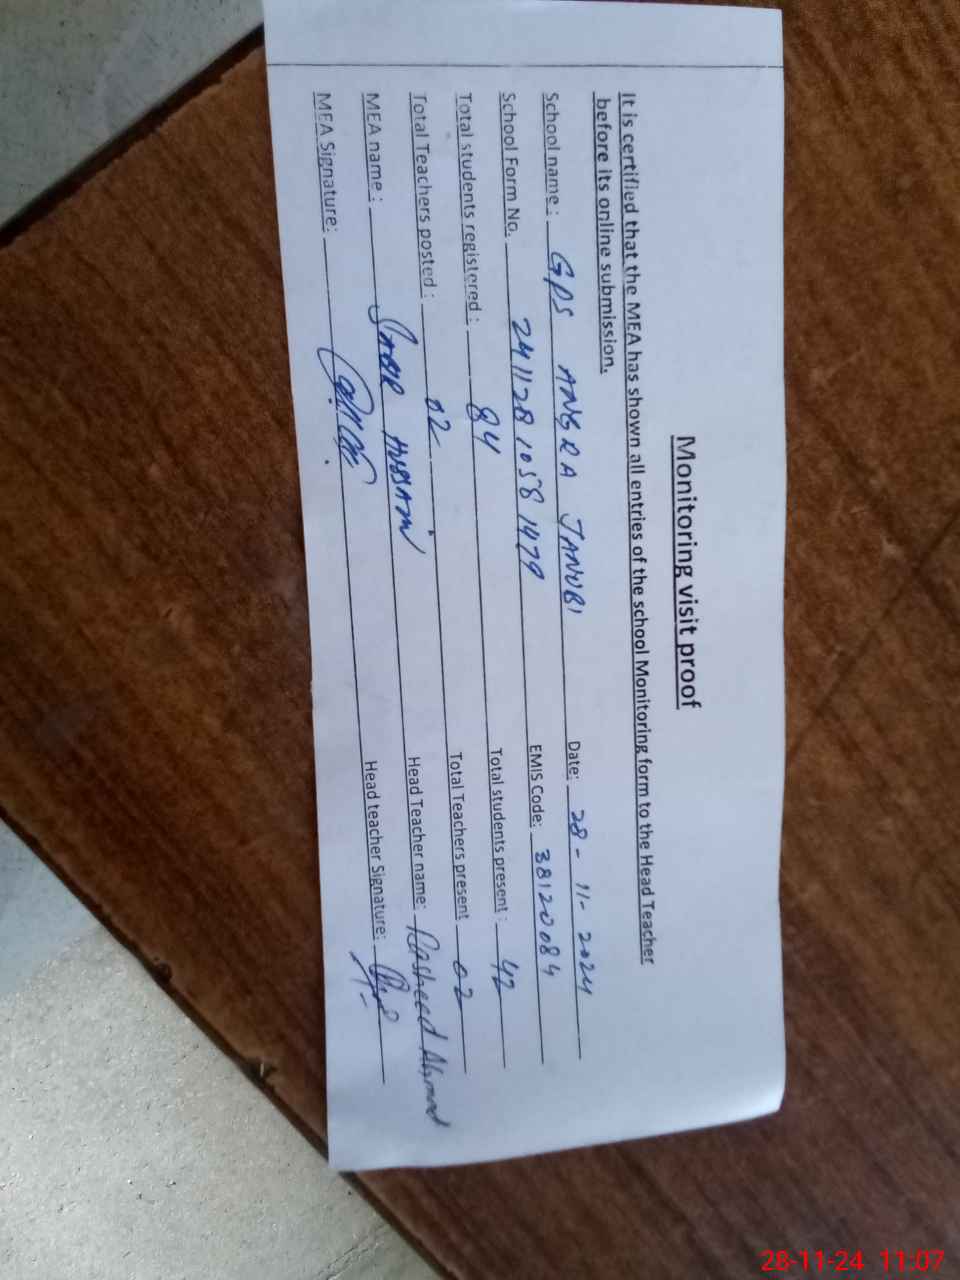 Monitoring visit proof
It is certified that the MEA has shown all entries of the school Monitoring form to the Head Teacher
before its online submission.
School name : GPS ANGRA JANUBI Date: 28-11-2024
School Form No. 241128 1058 1479 EMIS Code: 38120084
Total students registered : 84 Total students present : 42
Total Teachers posted : 02 Total Teachers present 02
MEA name : HUSSAIN Head Teacher name: Rasheed Ahmad
MEA Signature: Head teacher Signature:
28-11-24 11:07